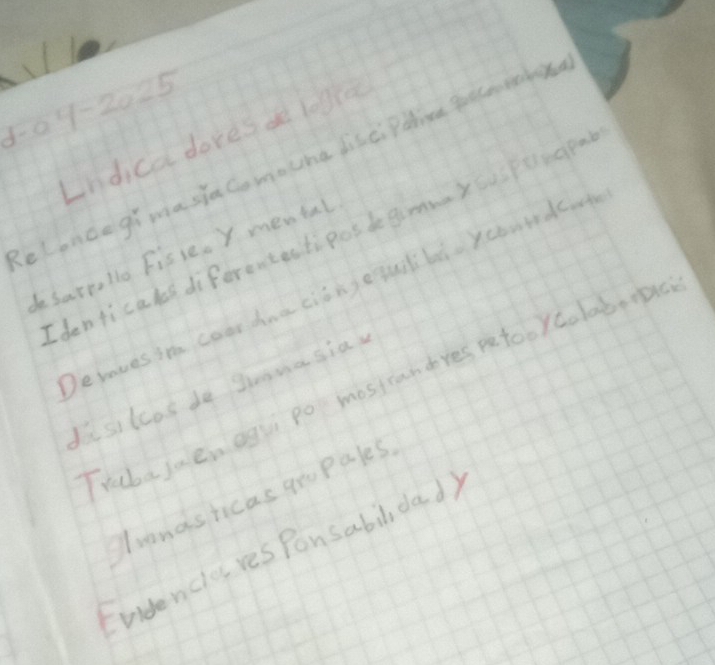 d-04-2025
Lndicadores de logro
Reconcegimasia como una disciplina
desarrollo Fisico y mental.
Identica los diferentes tipos de gimna y sus
Demuestra coordinación, equilibrio y control
básicos de gimnasia
Trabaja en equi po mostrando respeto y colabor
gimnasticas grupales.
Evidencia responsabilidad y